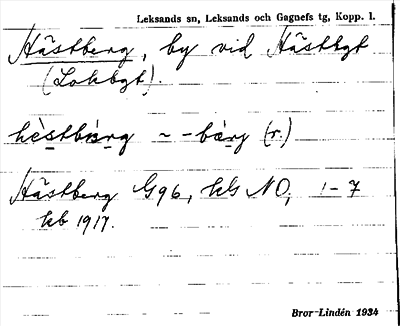 Leksands sn, Leksands och Gagnefs tg, Kopp. l.
Hästberg, by vid Hästbgt
(Lokbgt).
hèstbärg ~ -bärg (r.)
Hästberg G96, hls NO, 1-7
kb 1917.
Bror Lindén 1934